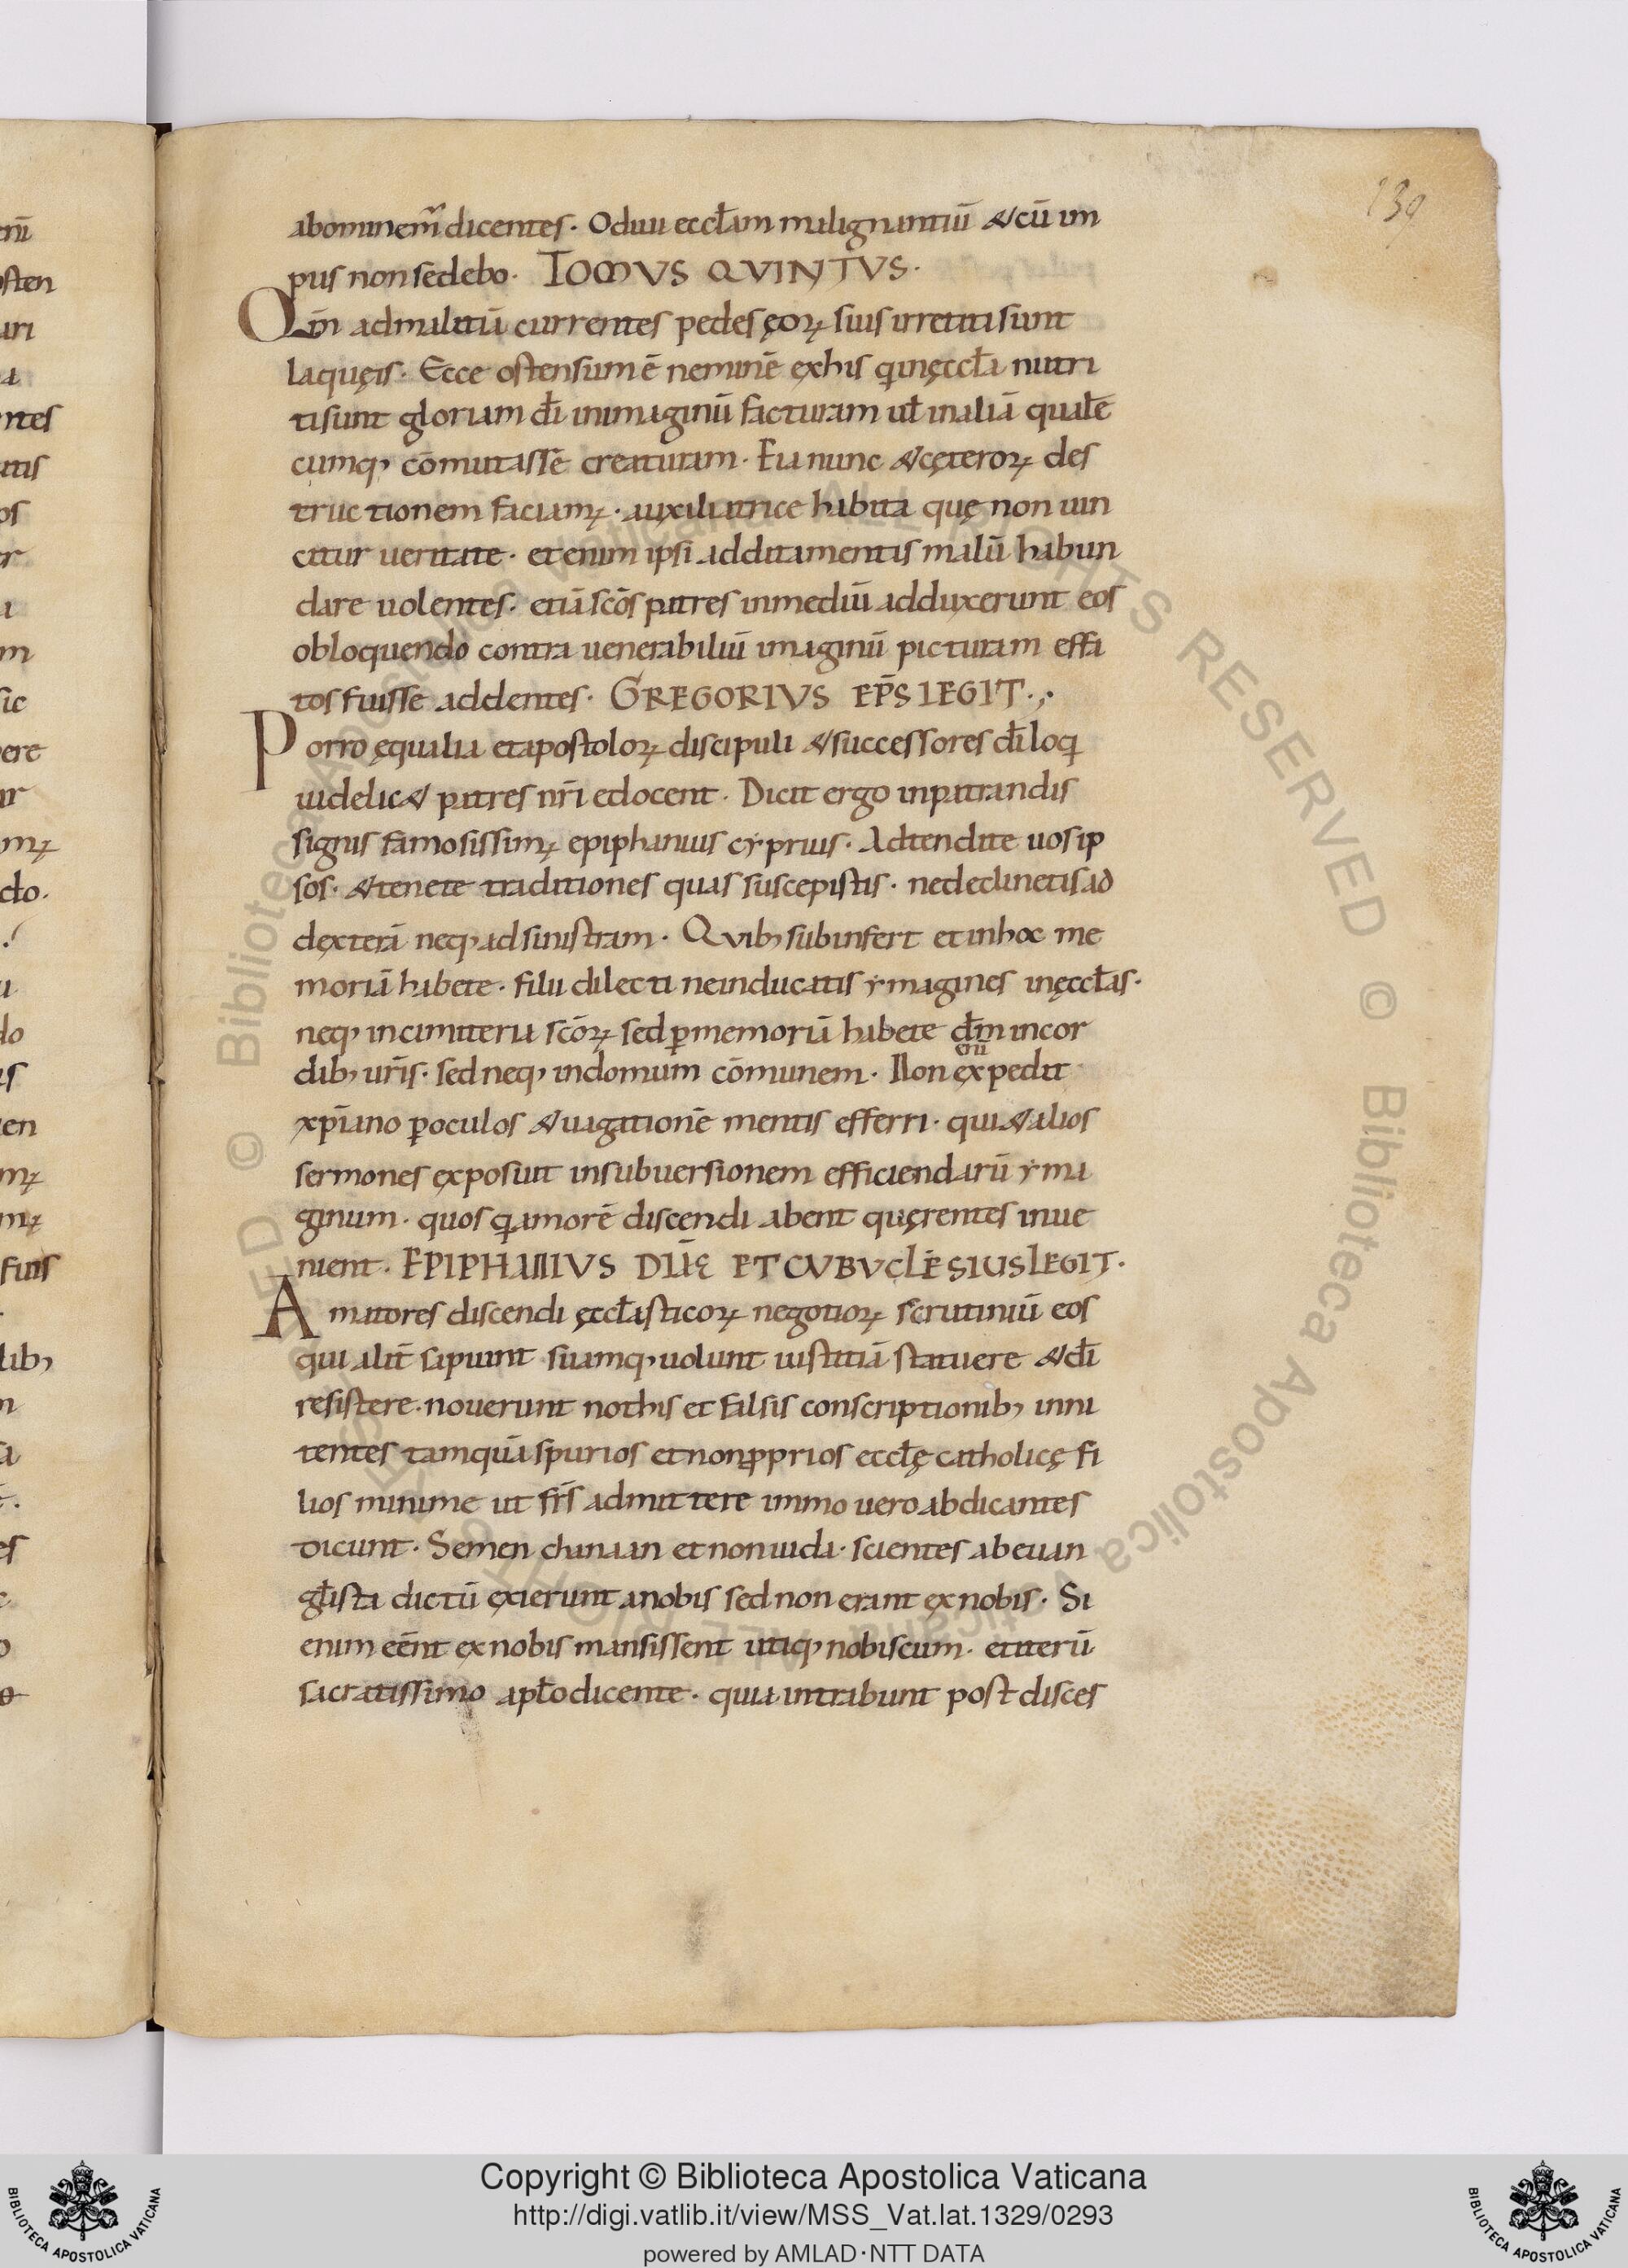 139
abominem̄ dicentes· Odiui eccƚam malignantiū & cū im
piis non sedebo· TOMUS QUINTUS·
Qm̄ ad malitiā currentes pedes ęoꝝ suis irretiti sunt
laquęis· Ecce ostensum ē neminē ex his qui in ęccƚa nutri
ti sunt gloriam dī in imaginū facturam uƚ in aliā qualē
cumq; cōmutasse creaturam· Eia nunc & cęteroꝝ des
tructionem faciamꝰ· auxiliatrice habita quę non uin
citur ueritate· etenim ipsi additamentis malū habun
dare uolentes· etiā scōs patres in mediū adduxerunt eos
obloquendo contra uenerabiliū imaginū picturam effa
tos fuisse addentes· GREGORIVS EP̄S LEGIT·,·
Porro ęqualia et apostoloꝝ discipuli & successores dīloqi
uidelic& patres nr̄i edocent· Dicit ergo in patrandis
signis famosissimꝰ epiphanius cẏprius· Adtendite uosip
sos· & tenete traditiones quas suscepistis· ne declinetis ad
dexterā neq; ad sinistram· Quib; subinfert et in hoc me
moriā habete· filii dilecti ne inducatis ẏmagines in ęccƚas·
neq; in cimiteria scōꝝ sed ꝑ memoriā habete dm̄ in cor
dib; ur̄is· sed neq; in domum cōmunem· Non enī expedit
xp̄iano ꝑ oculos & uagationē mentis efferri· qui & alios
sermones exposuit in subuersionem efficiendarū ẏma
ginum· quos qi amorē discendi abent quęrentes inue
nient· EPIPHANIVS DIAC̄ ET CVBVCLĒSIUS LEGIT·
Amatores discendi ęccƚasticoꝝ negotioꝝ scrutiniū eos
qui alit̄ sapiunt suamq; uolunt iustitiā statuere & dī
resistere· nouerunt nothis et falsis conscriptionib; inni
tentes tamquā spurios et non ꝓprios eccƚę catholicę fi
lios minime ut fr̄s admittere immo uero abdicantes
dicunt· Semen chanaan et non iuda· scientes ab euan
gƚista dictū exierunt a nobis sed non erant ex nobis· Si
enim eēnt ex nobis mansissent utiq; nobiscum· et iterū
sacratissimo apƚo dicente· quia intrabunt post disces
Copyright © Biblioteca Apostolica Vaticana
http://digi.vatlib.it/view/MSS_Vat.lat.1329/0293
powered by AMLAD·NTT DATA